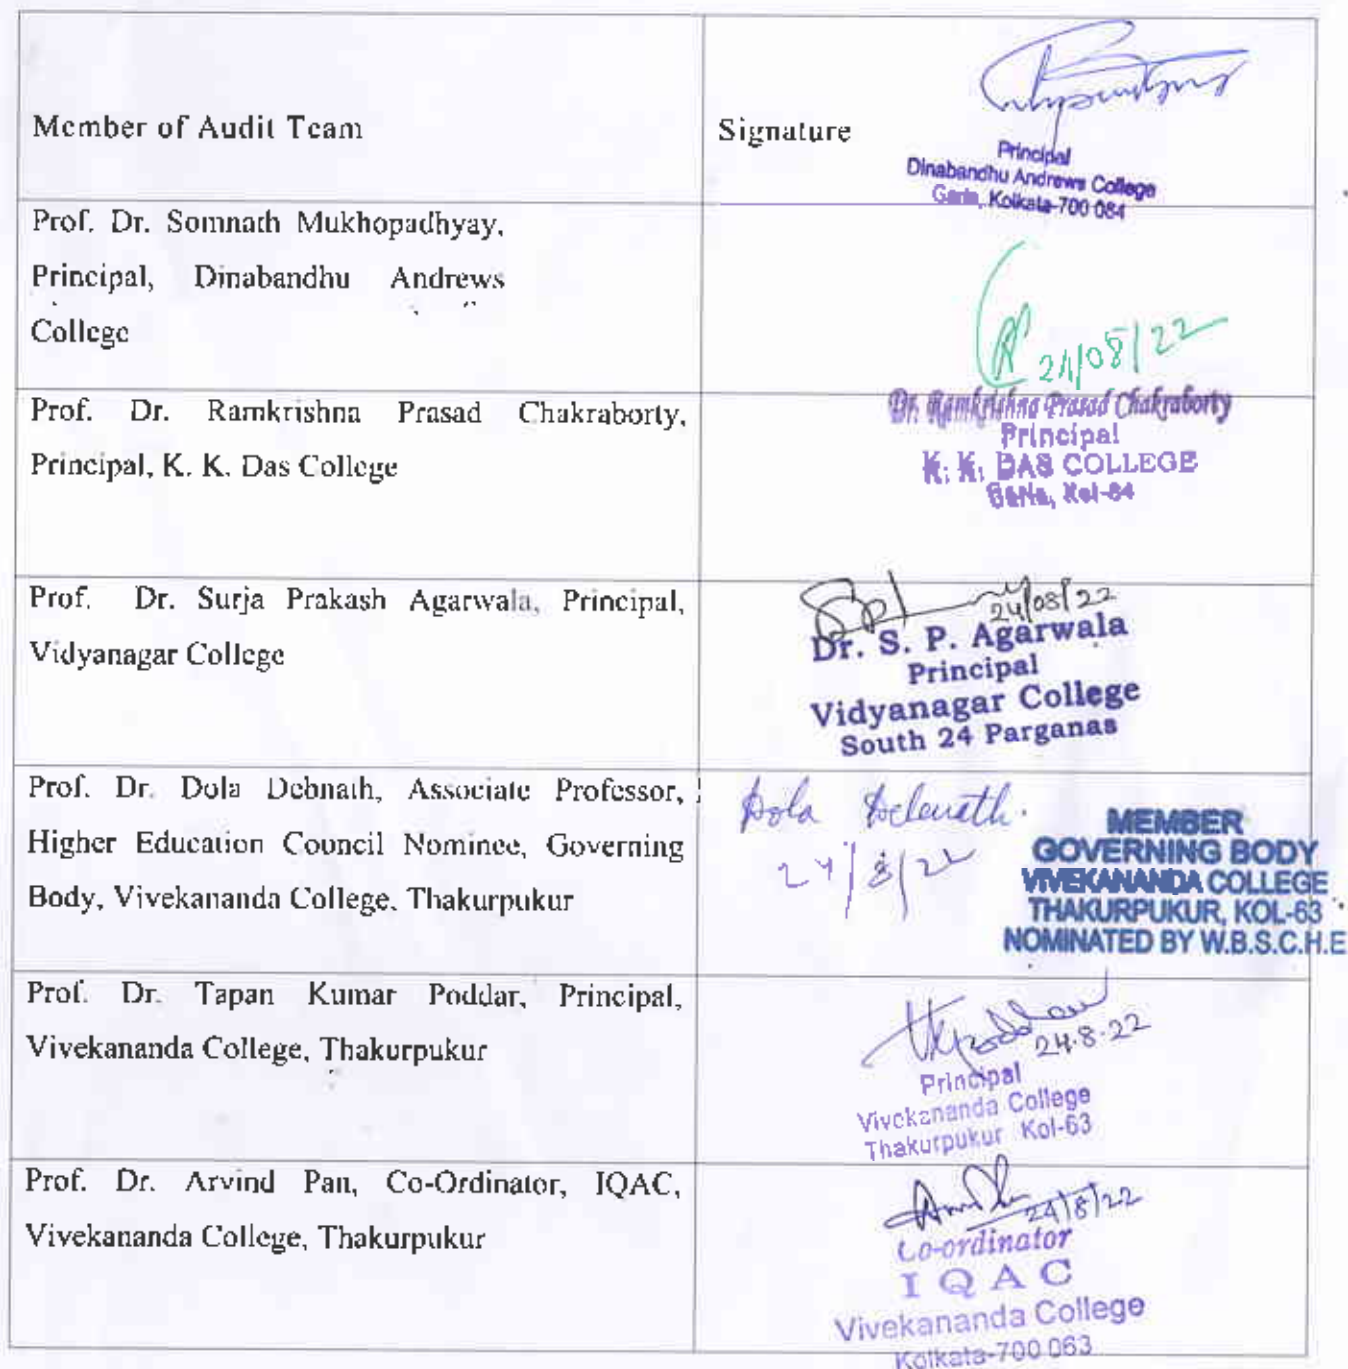 Member of Audit Team
Signature
Principal
Dinabandhu Andrews College
Garia, Kolkata-700 084
Prof. Dr. Somnath Mukhopadhyay,
Principal, Dinabandhu Andrews
College
24/08/22
Dr. Ramkrishna Prasad Chakraborty
Principal
K. K. DAS COLLEGE
Garia, Kol-84
Prof. Dr. Ramkrishna Prasad Chakraborty,
Principal, K. K. Das College
Prof. Dr. Surja Prakash Agarwala, Principal,
Vidyanagar College
24/08/22
Dr. S. P. Agarwala
Principal
Vidyanagar College
South 24 Parganas
Prof. Dr. Dola Debnath, Associate Professor,
Higher Education Council Nominee, Governing
Body, Vivekananda College, Thakurpukur
Dola Debnath.
24/8/22
MEMBER
GOVERNING BODY
VIVEKANANDA COLLEGE
THAKURPUKUR, KOL-63
NOMINATED BY W.B.S.C.H.E
Prof. Dr. Tapan Kumar Poddar, Principal,
Vivekananda College, Thakurpukur
24.8.22
Principal
Vivekananda College
Thakurpukur Kol-63
Prof. Dr. Arvind Pan, Co-Ordinator, IQAC,
Vivekananda College, Thakurpukur
24/8/22
Co-ordinator
I Q A C
Vivekananda College
Kolkata-700 063